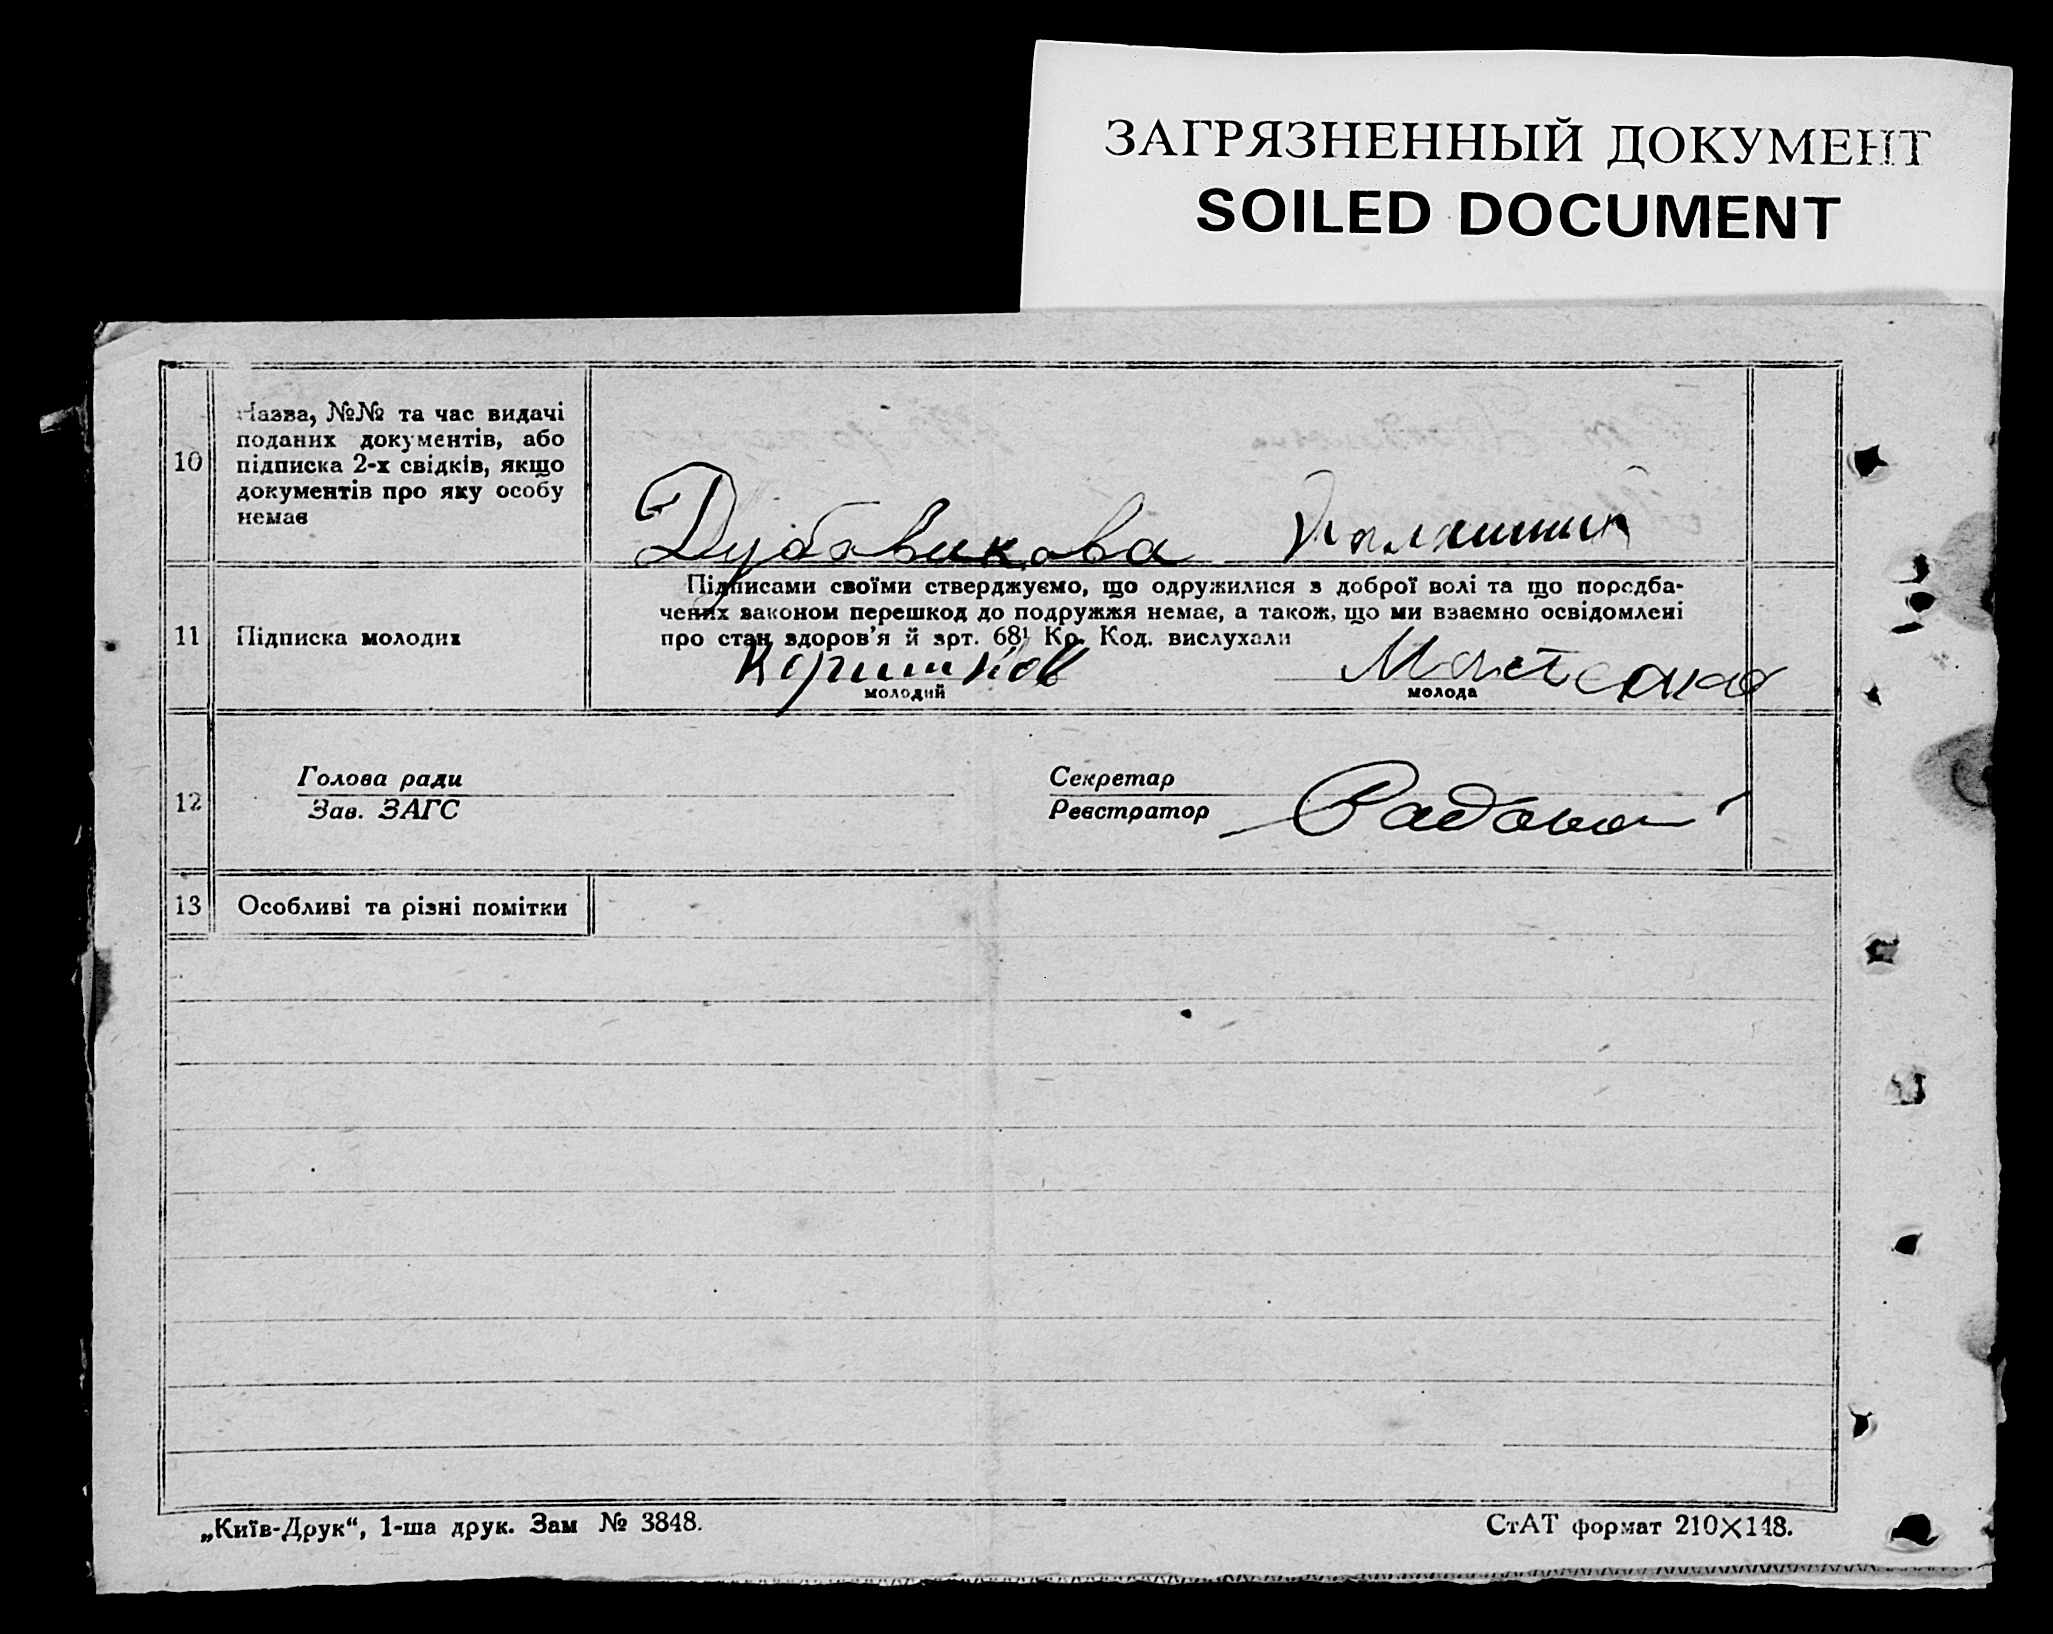 ЗАГРЯЗНЕННЫЙ ДОКУМЕНТ
SOILED DOCUMENT
10
Назва, №№ та час видачі
поданих документів, або
підписка 2-х свідків, якщо
документів про яку особу
немає
Дубовикова
11
Підписка молодих
Підписами своїми стверджуємо, що одружилися з доброї волі та що передба-
чених законом перешкод до подружжя немає, а також, що ми взаємно освідомлені
про стан здоров'я й арт. 68¹ Кр. Код. вислухали
молодий
молода
12
Голова ради
Зав. ЗАГС
Секретар
Реєстратор
13
Особливі та різні помітки
„Київ-Друк“, 1-ша друк. Зам № 3848.
СтАТ формат 210×148.